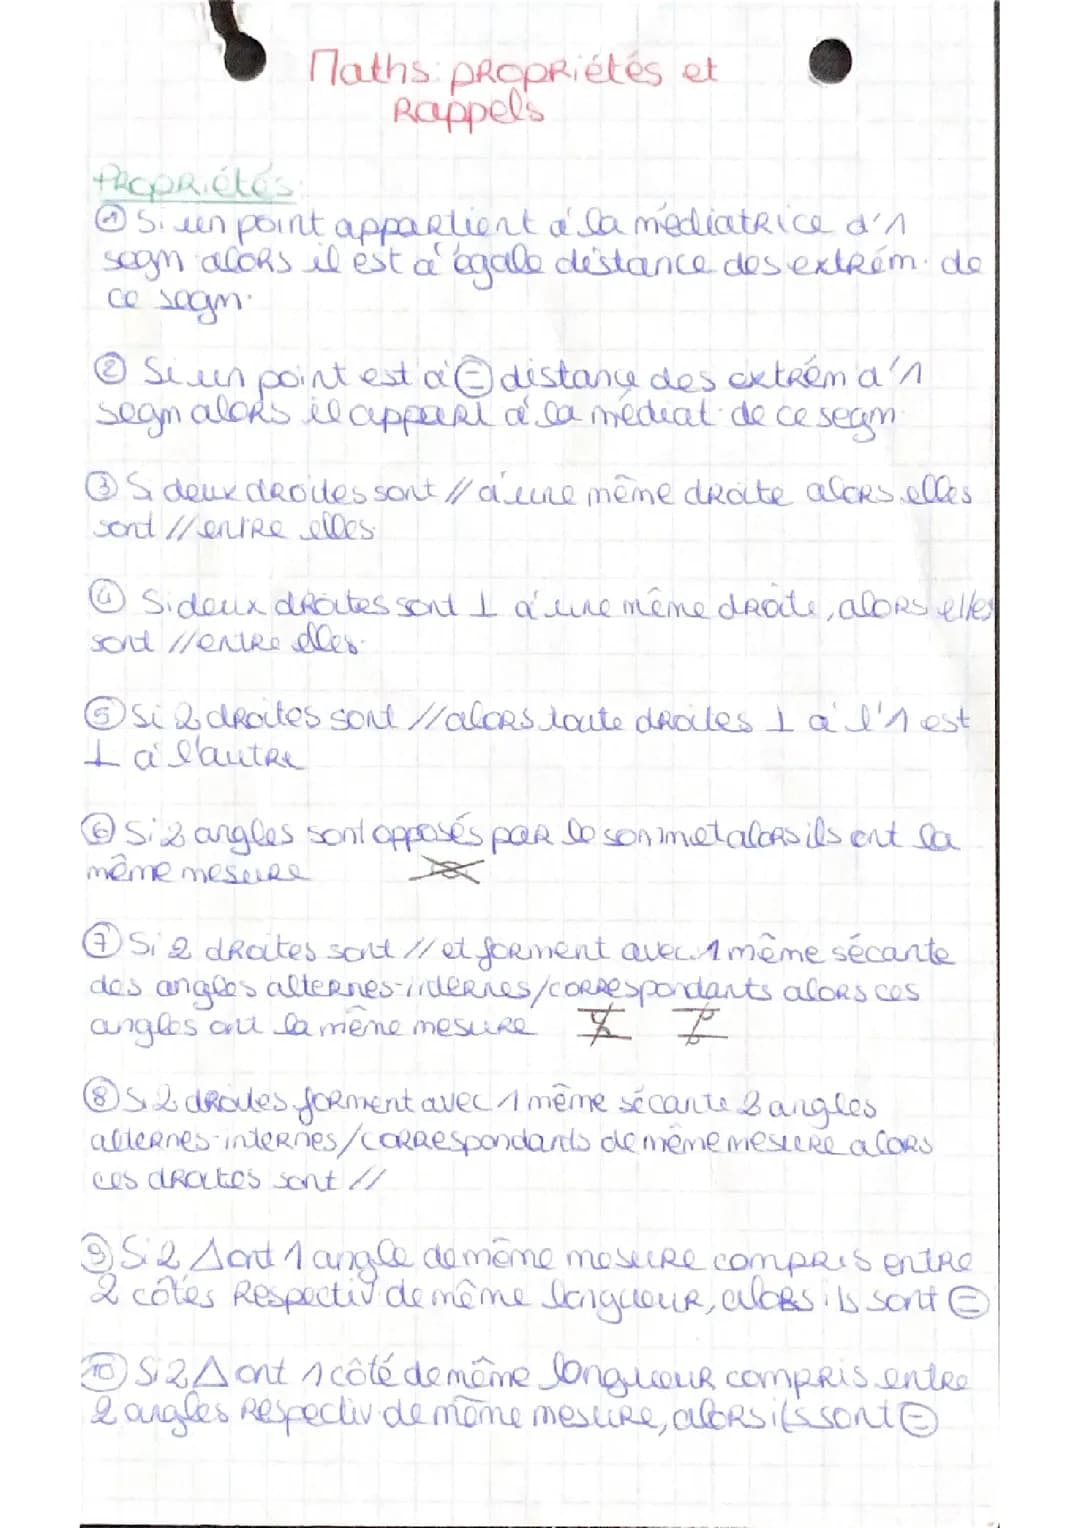 Maths: propriétés et
Rappels
Propriétés:
① Si un point appartient à la médiatrice d'1
segm alors il est à égale distance des extrém. de
ce segm.
② Si un point est à ⊜ distance des extrém d'1
segm alors il appart à la médiat. de ce segm.
③ Si deux droites sont // à une même droite alors elles
sont // entre elles.
④ Si deux droites sont ⊥ à une même droite, alors elles
sont // entre elles.
⑤ Si 2 droites sont // alors toute droites ⊥ à l'1 est
⊥ à l'autre
⑥ Si 2 angles sont opposés par le sommet alors ils ont la
même mesure
⑦ Si 2 droites sont // et forment avec 1 même sécante
des angles alternes-internes/correspondants alors ces
angles ont la même mesure
⑧ Si 2 droites forment avec 1 même sécante 2 angles
alternes-internes/correspondants de même mesure alors
ces droites sont //
⑨ Si 2 Δ ont 1 angle de même mesure compris entre
2 côtés respectiv. de même longueur, alors ils sont ⊜
⑩ Si 2 Δ ont 1 côté de même longueur compris entre
2 angles respectiv. de même mesure, alors ils sont ⊜